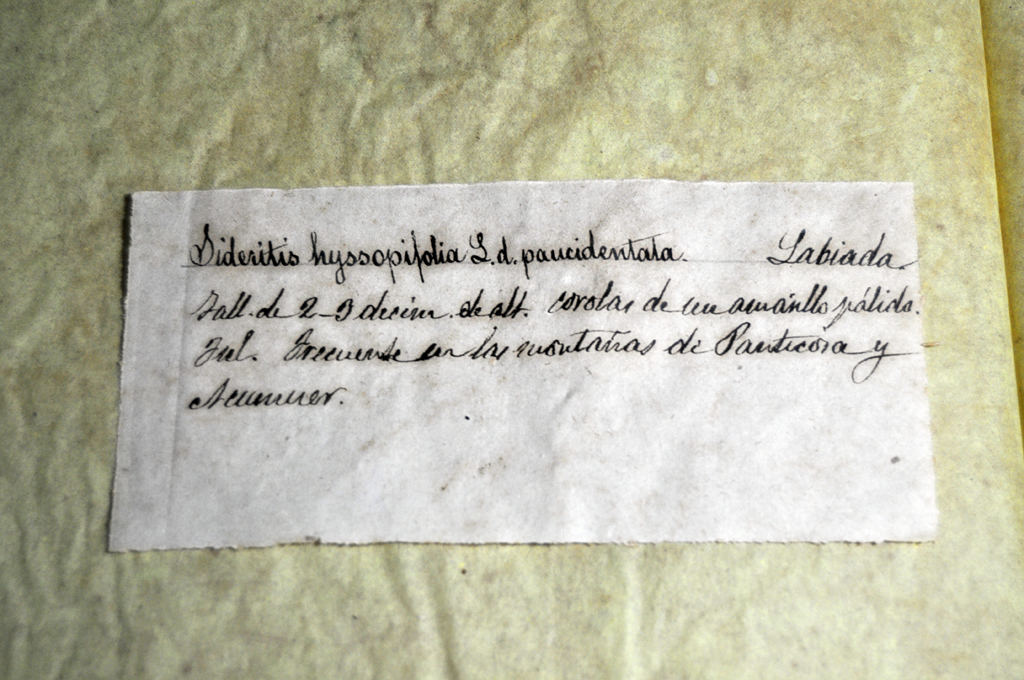 Sideritis hyssopifolia L. d. paucidentata. Labiada.
Tall. de 2-3 decim. de alt. corolas de un amarillo pálido.
Jul. Frecuente en las montañas de Panticosa y
Acumuer.